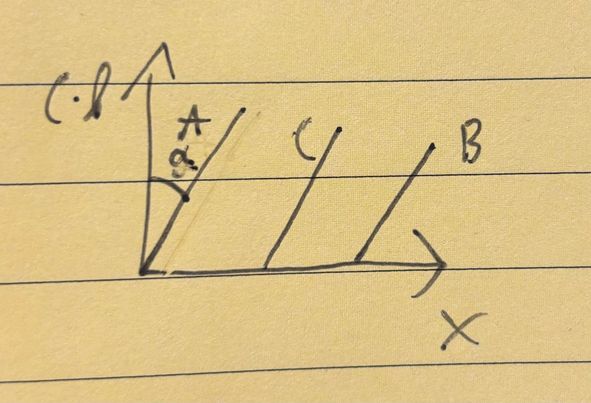 C·t
A
α
C
B
X